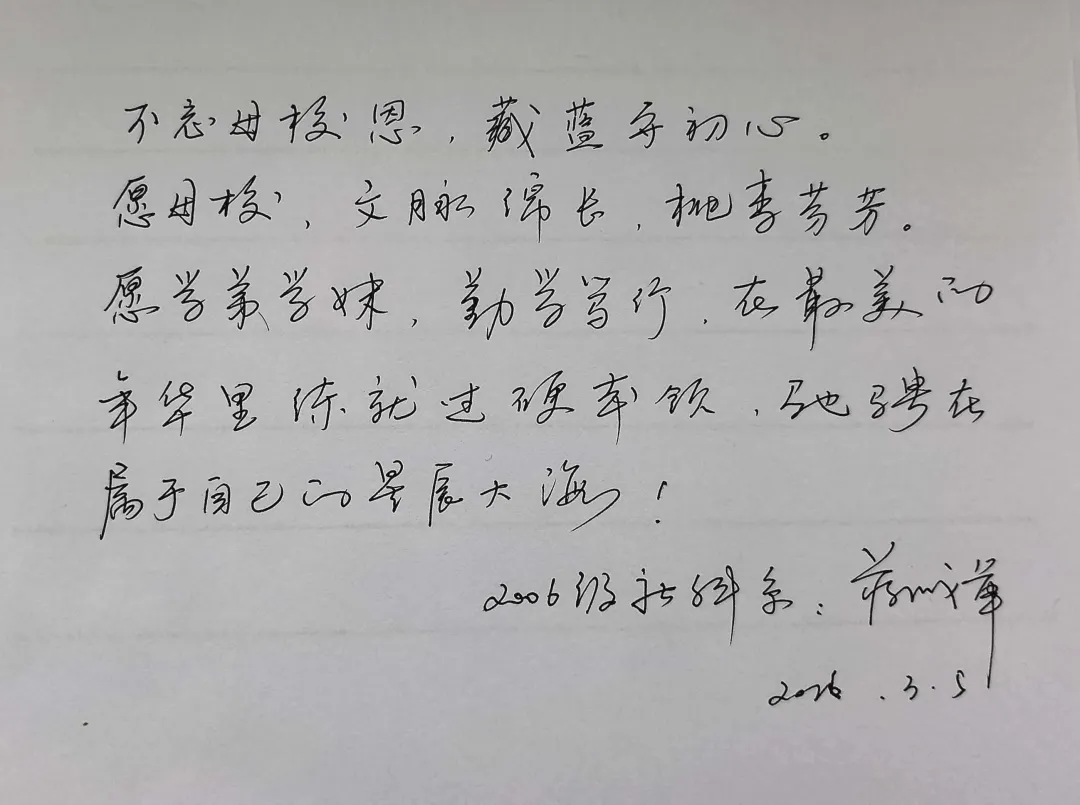 不忘母校恩，藏蓝守初心。
愿母校，文脉绵长，桃李芬芳。
愿学弟学妹，勤学笃行，在最美的
年华里练就过硬本领，驰骋在
属于自己的星辰大海！
2006级社科系：蒋成
2026.3.5